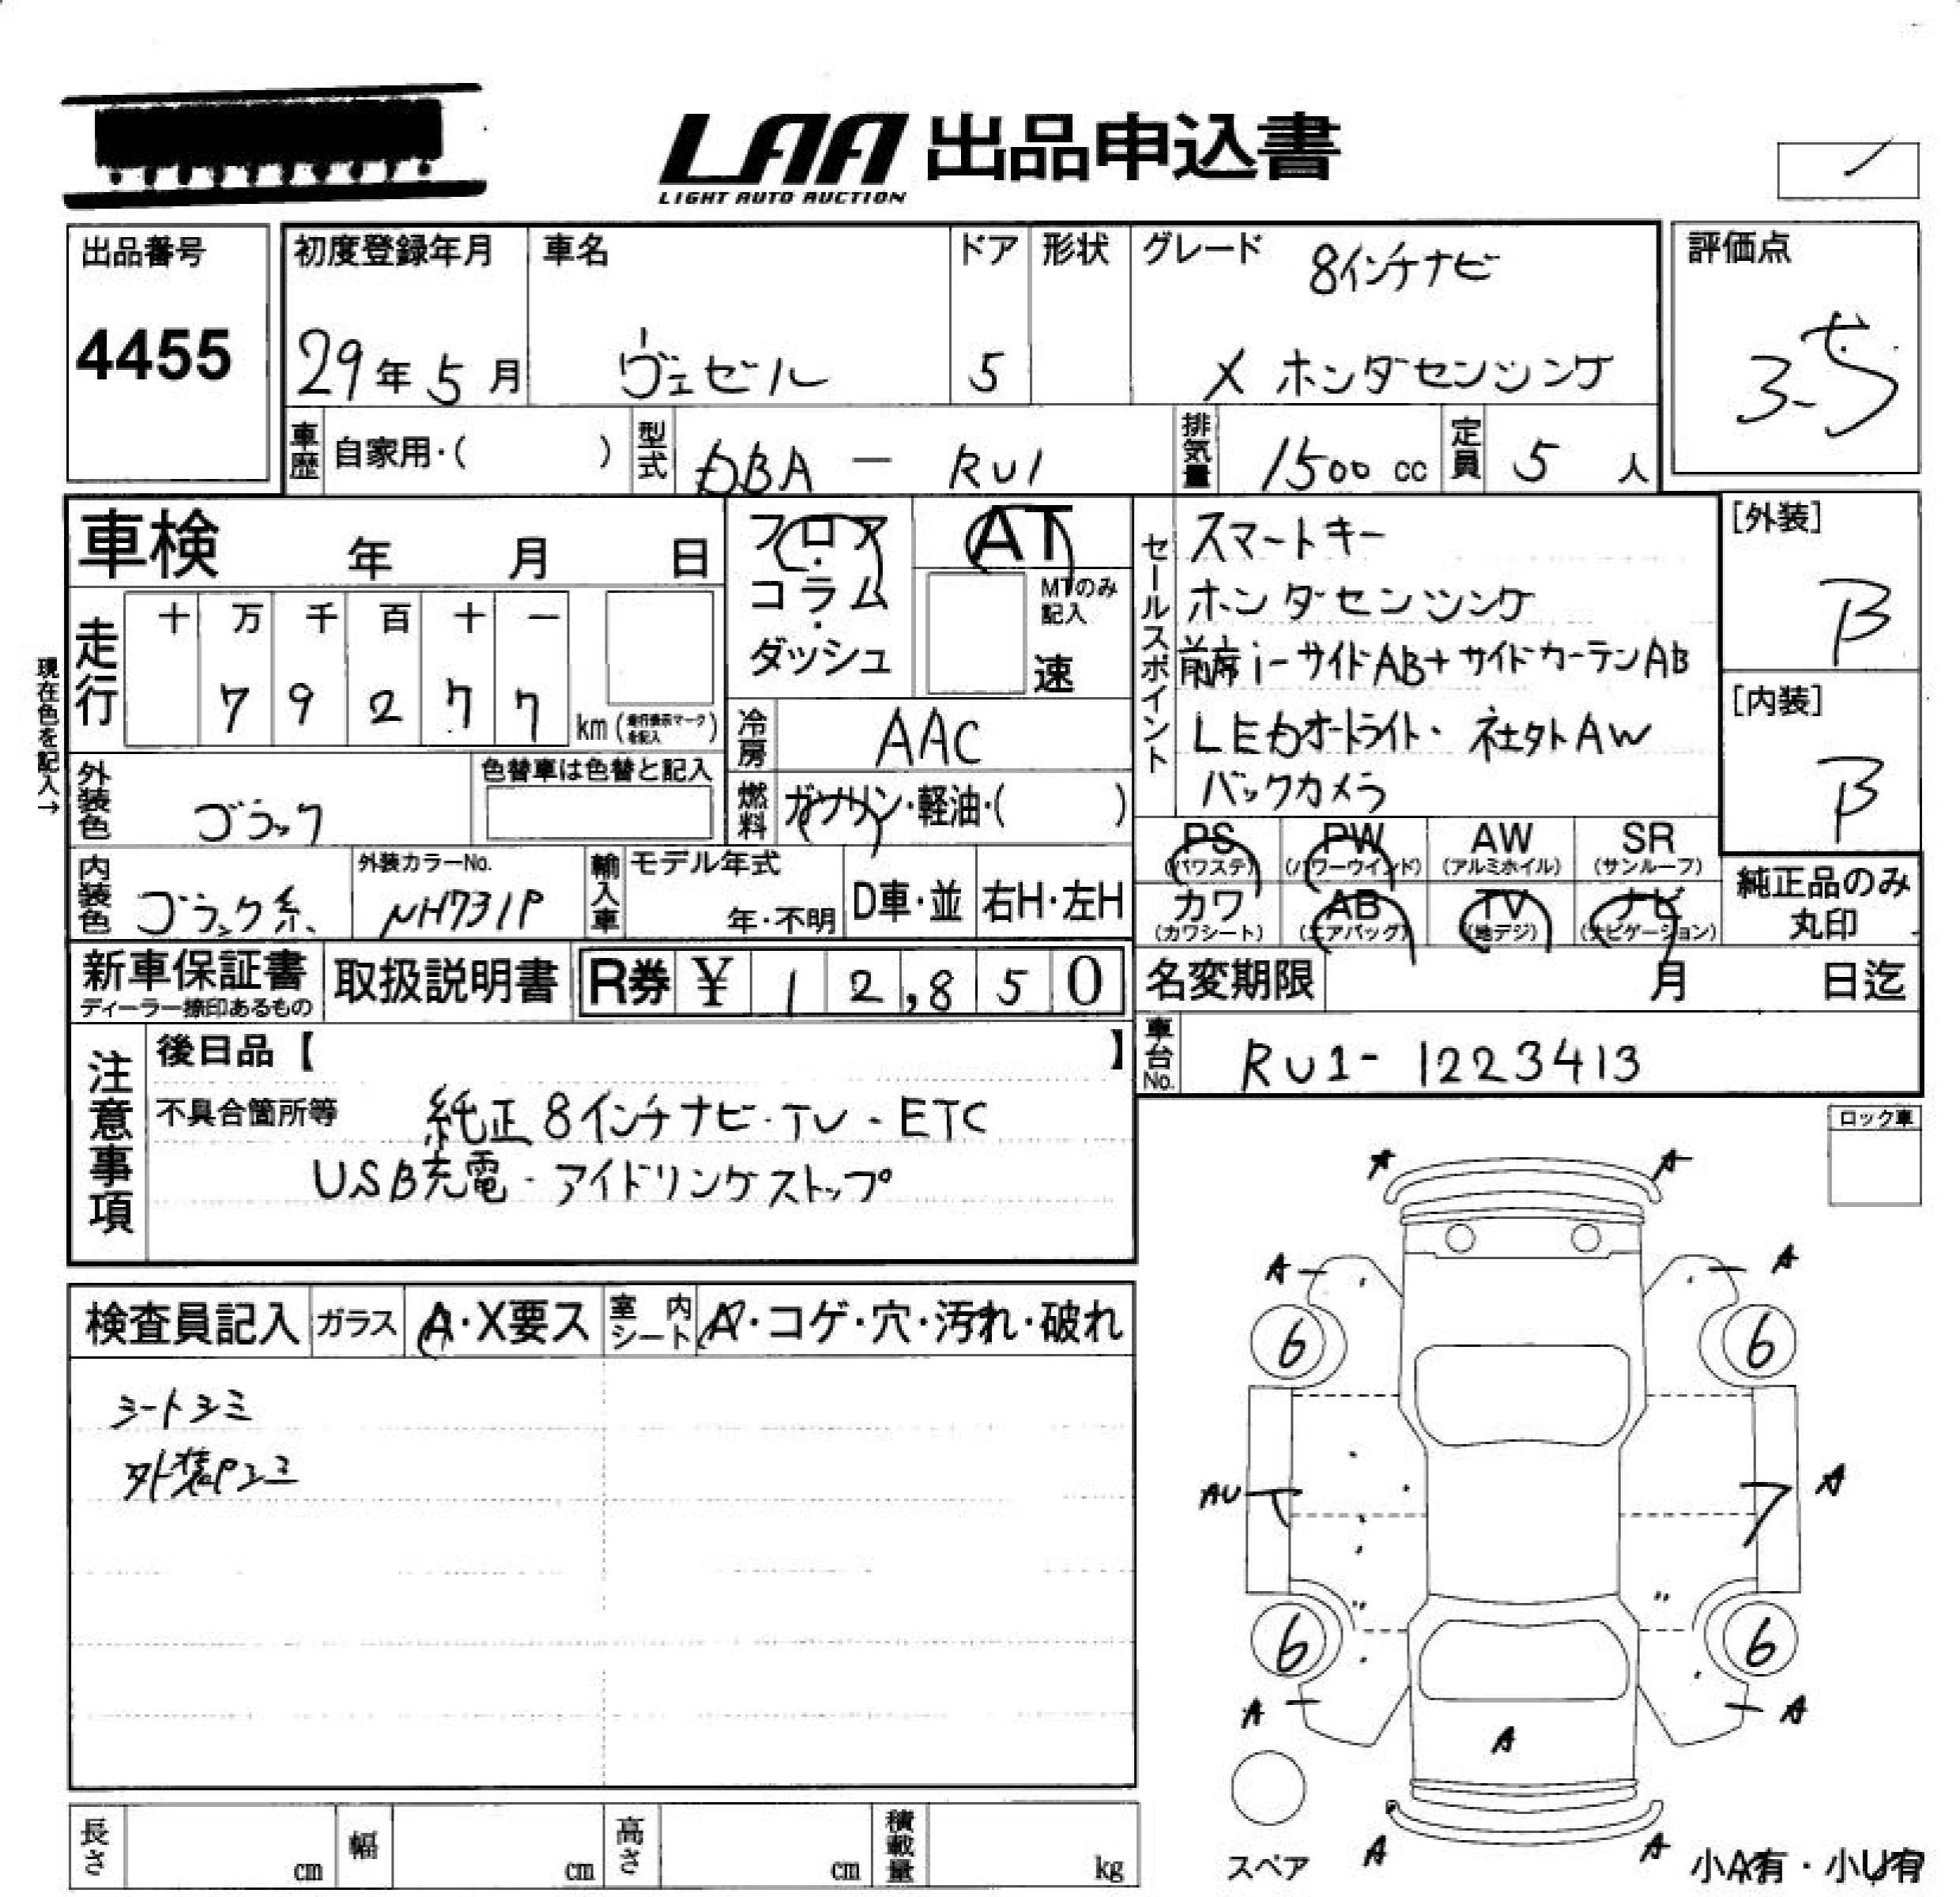 LAA 出品申込書
LIGHT AUTO AUCTION
出品番号
4455
初度登録年月
29年5月
車名
ヴェゼル
ドア
5
形状
グレード
8インチナビ
X ホンダセンシング
評価点
3.5
車歴
自家用・( )
型式
DBA － RU1
排気量
1500 cc
定員
5 人
車検 年 月 日
フロア・
コラム・
ダッシュ
AT
MTのみ
記入
速
セールスポイント
スマートキー
ホンダセンシング
前席i-サイドAB+サイドカーテンAB
LEDオートライト・社外AW
バックカメラ
[外装]
B
[内装]
B
現在色を記入→
走行
十 万 千 百 十 一
7 9 2 7 7 km
冷房
AAC
燃料
ガソリン・軽油・( )
外装色
ブラック
色替車は色替と記入
内装色
ブラック系
外装カラーNo.
NH731P
輸入車
モデル年式
年・不明
D車・並
右H・左H
PS
(パワステ)
PW
(パワーウインド)
AW
(アルミホイル)
SR
(サンルーフ)
カワ
(カワシート)
AB
(エアバッグ)
TV
(地デジ)
ナビ
(ナビゲーション)
純正品のみ
丸印
新車保証書
ディーラー捺印あるもの
取扱説明書
R券 ¥ 12,850
名変期限 月 日迄
車台No.
RU1-1223413
注意事項
後日品【 】
不具合箇所等
純正8インチナビ・TV・ETC
USB充電・アイドリングストップ
ロック車
検査員記入
ガラス
A・X要ス
室内シート
A・コゲ・穴・汚れ・破れ
シートシミ
外装Pシミ
A A
A A
6 6
AU A
6 6
A A
A
A A
スペア
小A有・小U有
長さ cm
幅 cm
高さ cm
積載量 kg